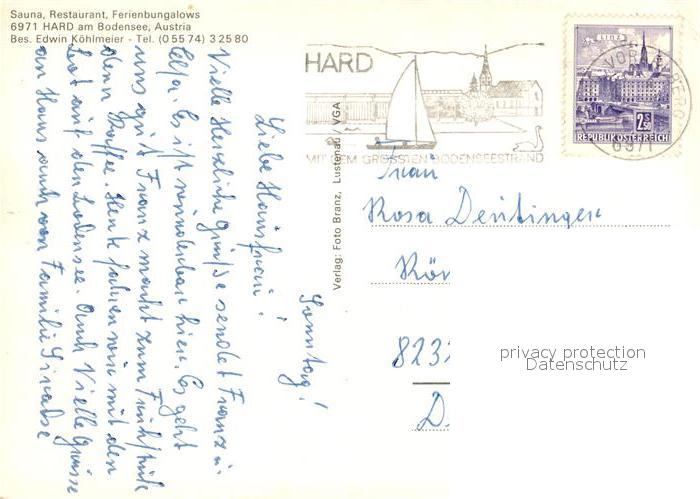 Sauna, Restaurant, Ferienbungalows
6971 HARD am Bodensee, Austria
Bes. Edwin Köhlmeier - Tel. (0 55 74) 3 25 80
Sonntag!
Liebe Hausfrau!
Vielle Herzliche Grüße sendet Franz u.
Elfa. Es ist wunderbar hier. Es geht
uns gut Franz macht zum Frühstück
den Kaffee. Heute fahren wir mit den
Boot auf den Bodensee. Auch Vielle Grüsse
an Hans auch von Familie
Verlag: Foto Branz, Lustenau / VGA
HARD
MIT DEM GRÖSSTEN BODENSEESTRAND
LINZ
2.50
REPUBLIK ÖSTERREICH
VORARLBERG
6971
Frau
Rosa Deutinger
Rör
823
D.
privacy protection
Datenschutz